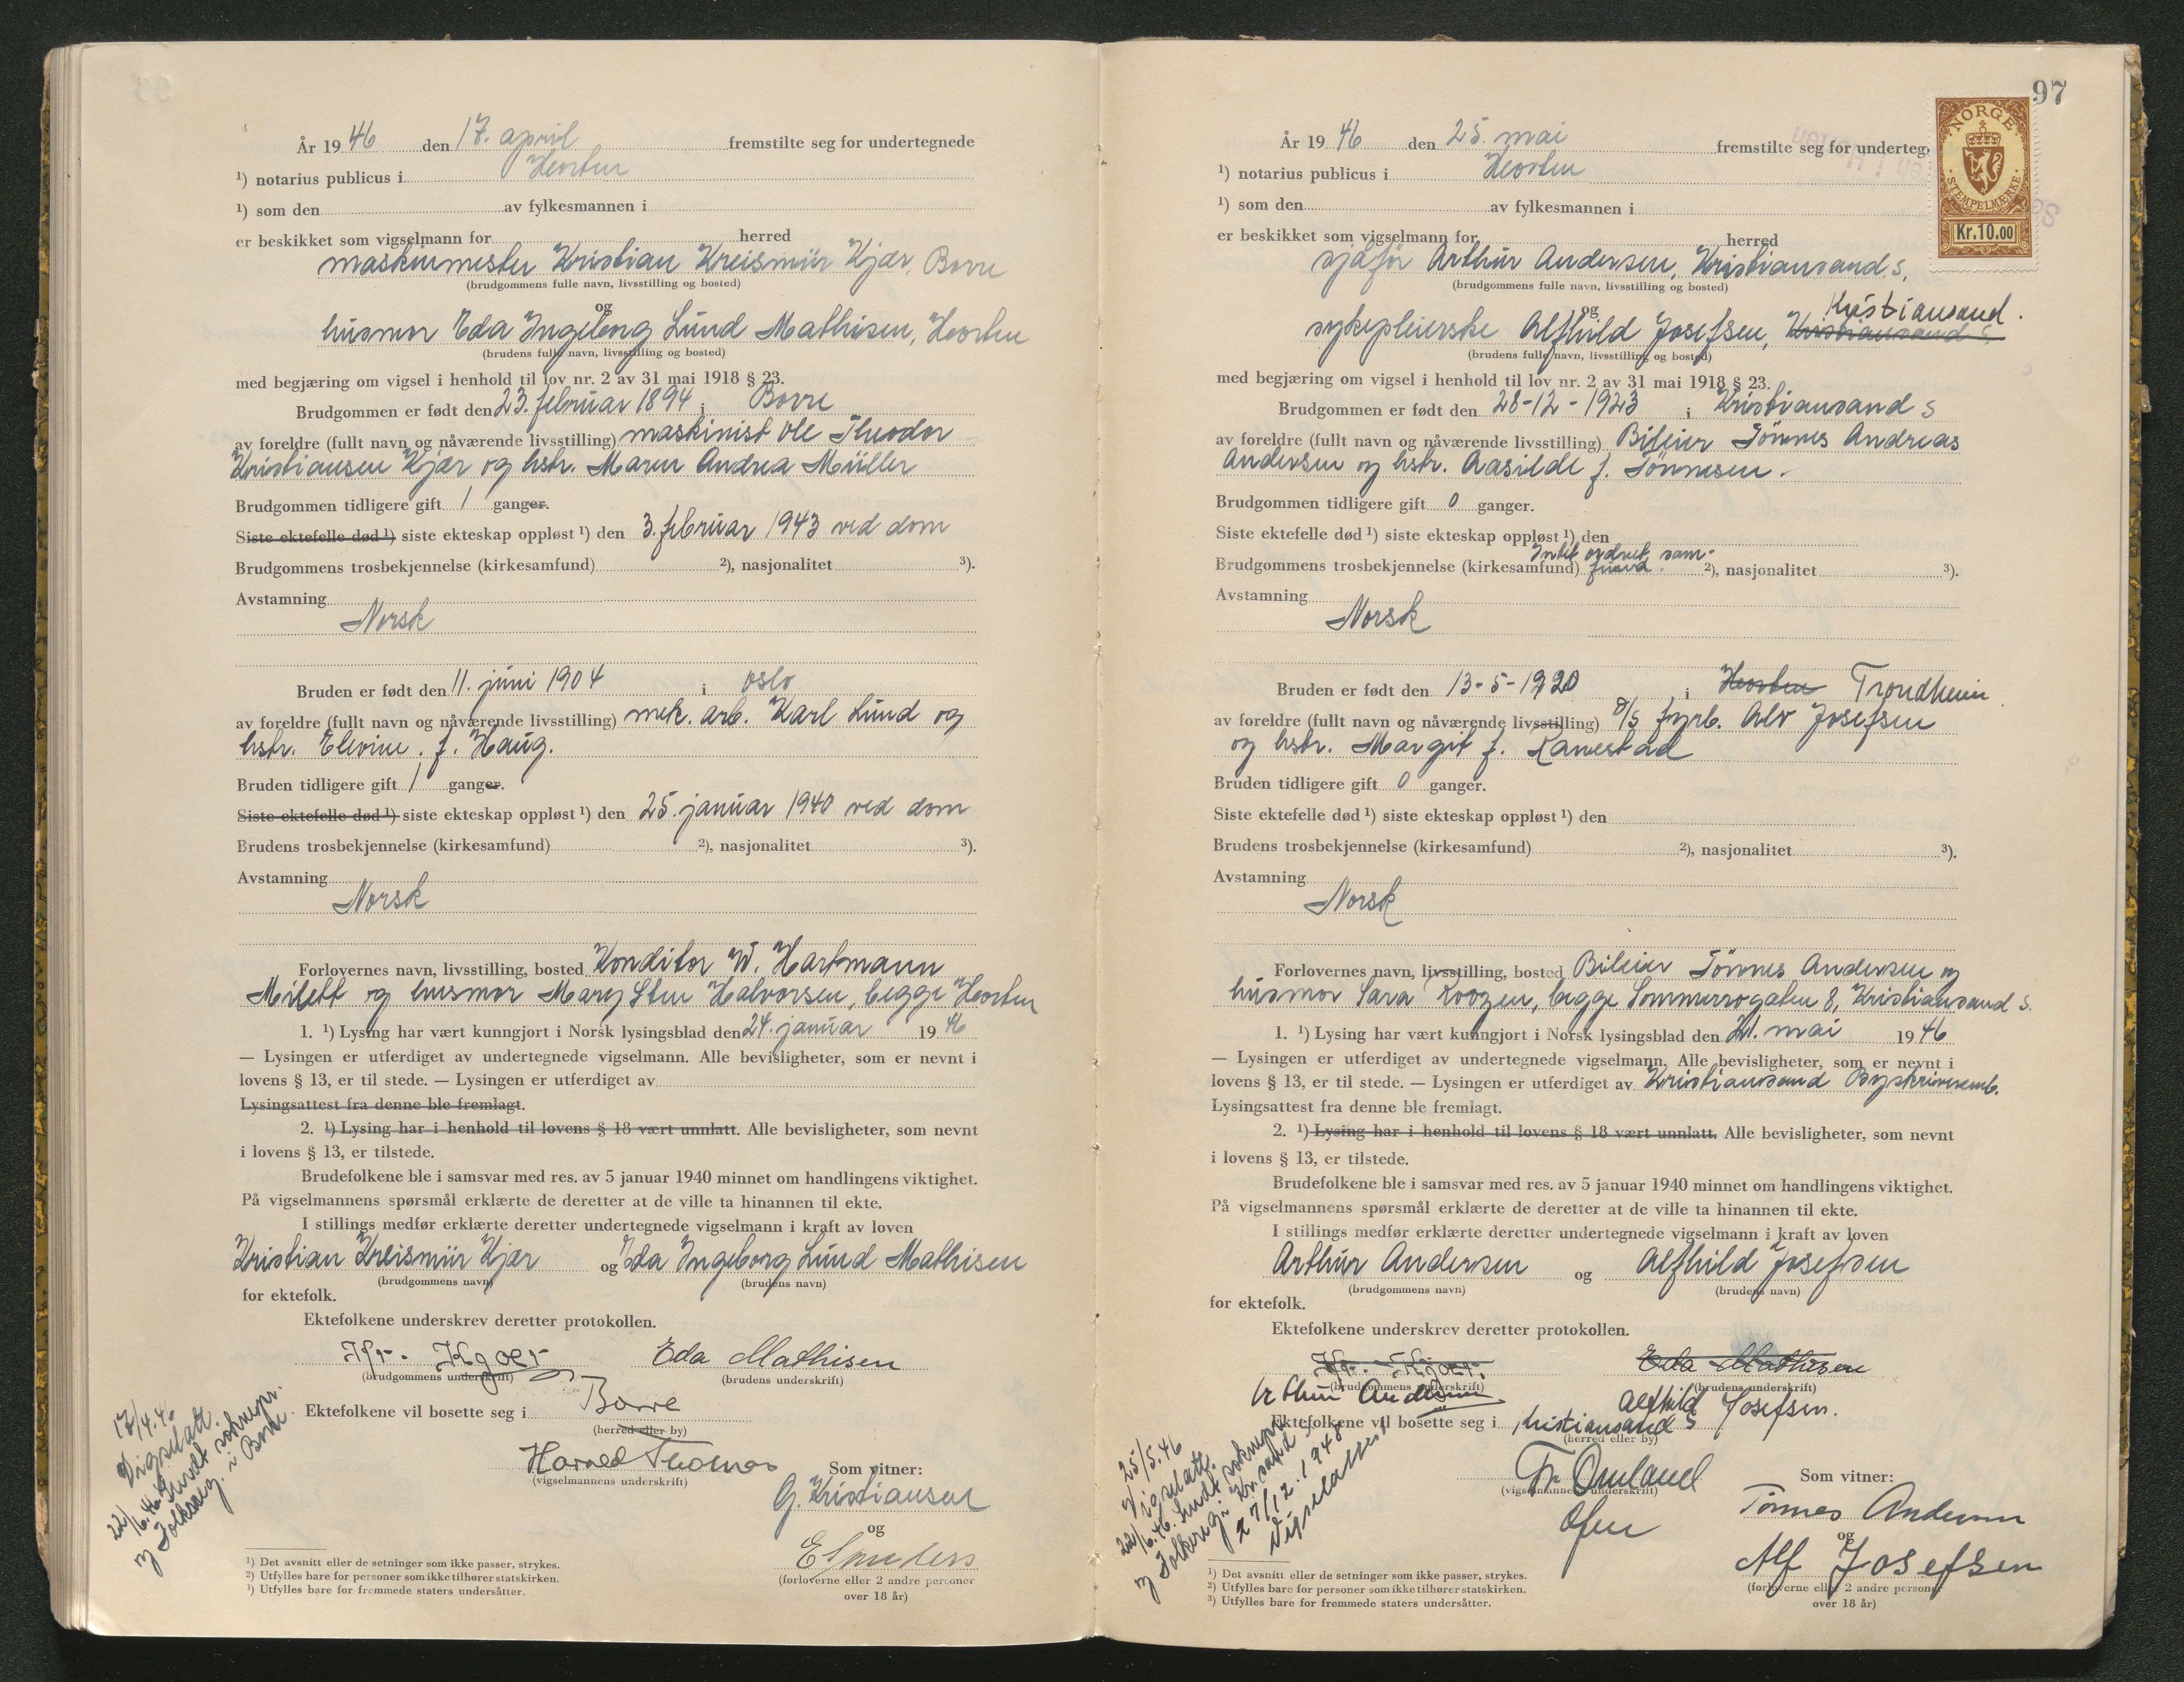 År 19 46 den 17. april fremstilte seg for undertegnede
¹) notarius publicus i Horten
¹) som den av fylkesmannen i
er beskikket som vigselmann for herred
maskinmester Kristian Kreismür Kjær, Borre
(brudgommens fulle navn, livsstilling og bosted)
og
husmor Eda Ingeborg Lund Mathisen, Horten
(brudens fulle navn, livsstilling og bosted)
med begjæring om vigsel i henhold til lov nr. 2 av 31 mai 1918 § 23.
Brudgommen er født den 23. februar 1894 i Borre
av foreldre (fullt navn og nåværende livsstilling) maskinist Ole Theodor
Kristiansen Kjær og hstr. Maren Andrea Müller
Brudgommen tidligere gift 1 ganger.
Siste ektefelle død ¹) siste ekteskap oppløst ¹) den 3. februar 1943 ved dom
Brudgommens trosbekjennelse (kirkesamfund) ²), nasjonalitet ³).
Avstamning
Norsk
Bruden er født den 11. juni 1904 i Oslo
av foreldre (fullt navn og nåværende livsstilling) mek. arb. Karl Lund og
hstr. Elevine f. Haug.
Bruden tidligere gift 1 ganger.
Siste ektefelle død ¹) siste ekteskap oppløst ¹) den 25. januar 1940 ved dom
Brudens trosbekjennelse (kirkesamfund) ²), nasjonalitet ³).
Avstamning
Norsk
Forlovernes navn, livsstilling, bosted Konditor W. Hartmann
Milett og husmor Mary Sten Halvorsen, begge Horten
1. ¹) Lysing har vært kunngjort i Norsk lysingsblad den 24. januar 19 46
— Lysingen er utferdiget av undertegnede vigselmann. Alle bevisligheter, som er nevnt i
lovens § 13, er til stede. — Lysingen er utferdiget av
Lysingsattest fra denne ble fremlagt.
2. ¹) Lysing har i henhold til lovens § 18 vært unnlatt. Alle bevisligheter, som nevnt
i lovens § 13, er tilstede.
Brudefolkene ble i samsvar med res. av 5 januar 1940 minnet om handlingens viktighet.
På vigselmannens spørsmål erklærte de deretter at de ville ta hinannen til ekte.
I stillings medfør erklærte deretter undertegnede vigselmann i kraft av loven
Kristian Kreismür Kjær og Eda Ingeborg Lund Mathisen
(brudgommens navn) (brudens navn)
for ektefolk.
Ektefolkene underskrev deretter protokollen.
Kr. Kjær Eda Mathisen
(brudgommens underskrift) (brudens underskrift)
Ektefolkene vil bosette seg i Borre
(herred eller by)
Harald Thomas
(vigselmannens underskrift) Som vitner:
G. Kristiansen
og
(forloverne eller 2 andre personer
over 18 år)
17/4.46
Vigselatt.
22/6.46. Sendt soknepr.
og Folkereg. i Borre.
¹) Det avsnitt eller de setninger som ikke passer, strykes.
²) Utfylles bare for personer som ikke tilhører statskirken.
³) Utfylles bare for fremmede staters undersåtter.
97
NORGE
STEMPELMERKE
Kr.10.00
År 19 46 den 25 mai fremstilte seg for underteg
¹) notarius publicus i Horten
¹) som den av fylkesmannen i
er beskikket som vigselmann for herred
sjåfør Arthur Andersen, Kristiansand S,
(brudgommens fulle navn, livsstilling og bosted)
og Kristiansand.
sykepleierske Alfhild Josefsen, Kristiansand S
(brudens fulle navn, livsstilling og bosted)
med begjæring om vigsel i henhold til lov nr. 2 av 31 mai 1918 § 23.
Brudgommen er født den 28-12-1923 i Kristiansand S
av foreldre (fullt navn og nåværende livsstilling) Bileier Tönnes Andreas
Andersen og hstr. Aasilde f. Tönnesen.
Brudgommen tidligere gift 0 ganger.
Siste ektefelle død ¹) siste ekteskap oppløst ¹) den
Intet ordnet sam-
Brudgommens trosbekjennelse (kirkesamfund) fund. ²), nasjonalitet ³).
Avstamning
Norsk
Bruden er født den 13-5-1920 i Horten Trondheim
av foreldre (fullt navn og nåværende livsstilling) 8/5 fyrb. Alv Josefsen
og hstr. Margit f. Ranestad
Bruden tidligere gift 0 ganger.
Siste ektefelle død ¹) siste ekteskap oppløst ¹) den
Brudens trosbekjennelse (kirkesamfund) ²), nasjonalitet ³).
Avstamning
Norsk
Forlovernes navn, livsstilling, bosted Bileier Tönnes Andersen og
husmor Sara Roozen, begge Sommerrogaten 8, Kristiansand S.
1. ¹) Lysing har vært kunngjort i Norsk lysingsblad den 21. mai 19 46
— Lysingen er utferdiget av undertegnede vigselmann. Alle bevisligheter, som er nevnt i
lovens § 13, er til stede. — Lysingen er utferdiget av Kristiansand Byskriveremb.
Lysingsattest fra denne ble fremlagt.
2. ¹) Lysing har i henhold til lovens § 18 vært unnlatt. Alle bevisligheter, som nevnt
i lovens § 13, er tilstede.
Brudefolkene ble i samsvar med res. av 5 januar 1940 minnet om handlingens viktighet.
På vigselmannens spørsmål erklærte de deretter at de ville ta hinannen til ekte.
I stillings medfør erklærte deretter undertegnede vigselmann i kraft av loven
Arthur Andersen og Alfhild Josefsen
(brudgommens navn) (brudens navn)
for ektefolk.
Ektefolkene underskrev deretter protokollen.
Kr. Kjær Eda Mathisen
(brudgommens underskrift) (brudens underskrift)
Arthur Andersen Alfhild Josefsen.
Ektefolkene vil bosette seg i Kristiansand S
(herred eller by)
Fr. Omland
(vigselmannens underskrift) Som vitner:
Tönnes Andersen
og
Alf Josefsen
(forloverne eller 2 andre personer
over 18 år)
25/5.46
Vigselatt.
22/6.46. Sendt sokneprest
og Folkereg. i Kr.sand S
27/12.1948
Vigselattest
¹) Det avsnitt eller de setninger som ikke passer, strykes.
²) Utfylles bare for personer som ikke tilhører statskirken.
³) Utfylles bare for fremmede staters undersåtter.